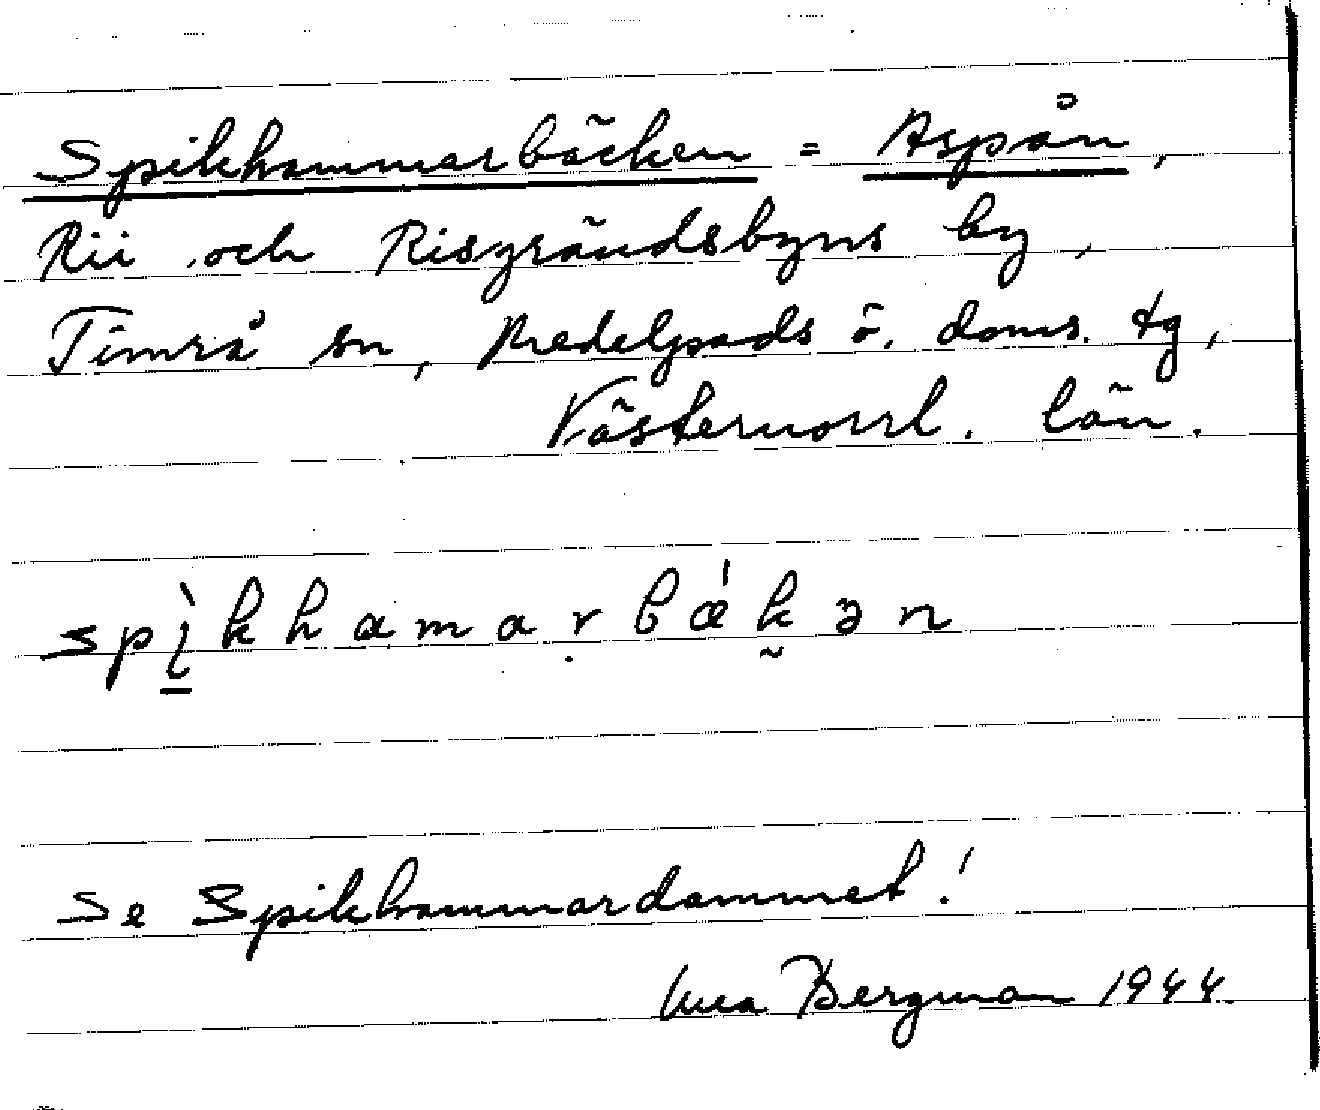 Spikhammarbäcken = Aspån,
Rii och Risgrändsbyns by,
Timrå sn, Medelpads ö. doms. tg,
Västernorrl. län.
spì̠khamaṛbǽk̰ən
Se Spikhammardammet!
Bergman 1944.